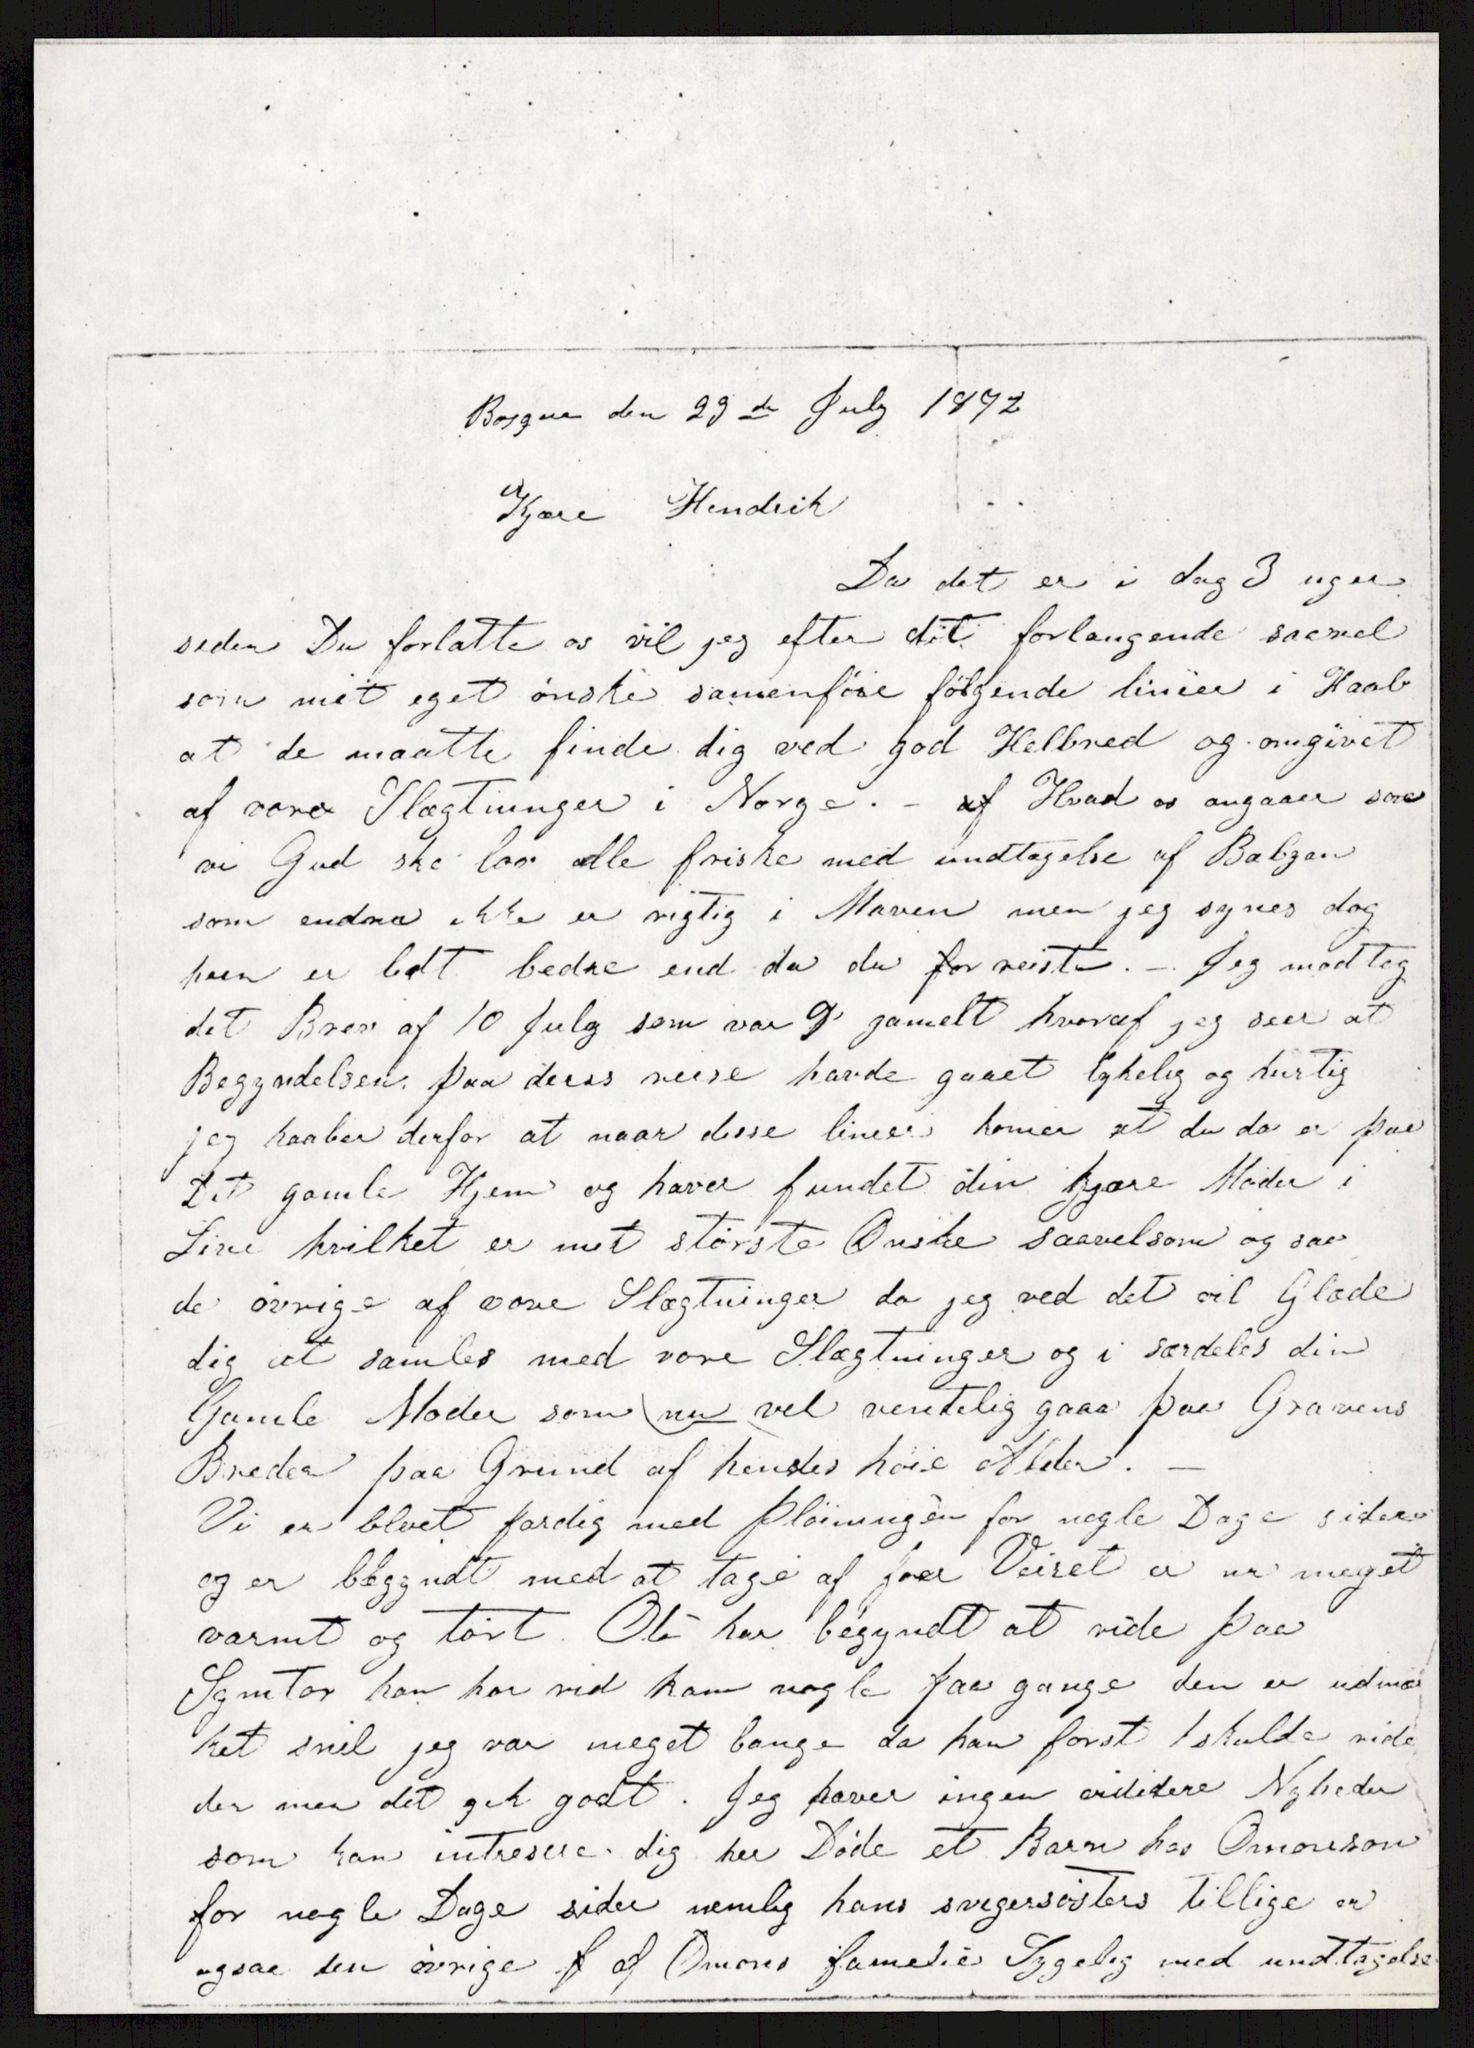 Bosque den 29de July 1872
Kjære Hendrik
Da det er i dag 3 uger
siden Du forlatte os vil jeg efter dit forlangende saavel
som mit eget ønske samenføie følgende linier i Haab
at de maatte finde dig ved god Helbred og omgivet
af vore Slægtninger i Norge. - Hvad os angaaer saa
vi Gud ske lov alle friske med undtagelse af
som endnu ikke er rigtig i Maven men jeg synes dog
hun er lidt bedre end da du forreiste. - Jeg modtog
det Brev af 10 July som var 9 gamelt hvoraf jeg seer at
Begyndelsen paa deres reise havde gaaet lykelig og hurtig
jeg haaber derfor at naar disse linier komer at du da er paa
Dit gamle Hjem og haver fundet din kjære Moder i
Live hvilket er mit største Ønske saavelsom og saa
de øvrige af vore Slægtninger da jeg ved det vil Glæde
dig at samles med vore Slægtninger og i særdeles din
Gamle Moder som nu vel ventelig gaaa paa Gravens
Bredea paa Grund af hendes høie Alder. -
Vi er blevet færdig med Pløiningen for nogle Dage siden
og er begyndt med at tage af foer Veiret er nu meget
varmt og tørt. Ole har begyndt at ride paa
han har rid ham nogle faa gange den er udmæ
ket snil jeg var meget bange da han først skulde ride
den men det gik godt. Jeg haver ingen vididere Nyheder
som kan intresere dig her Døde et Barn hos Omonson
for nogle Dage siden nemlig hans svigersøsters tillige er
ogsaa den øvrige f af Omons familie Sygelig med undtagelse